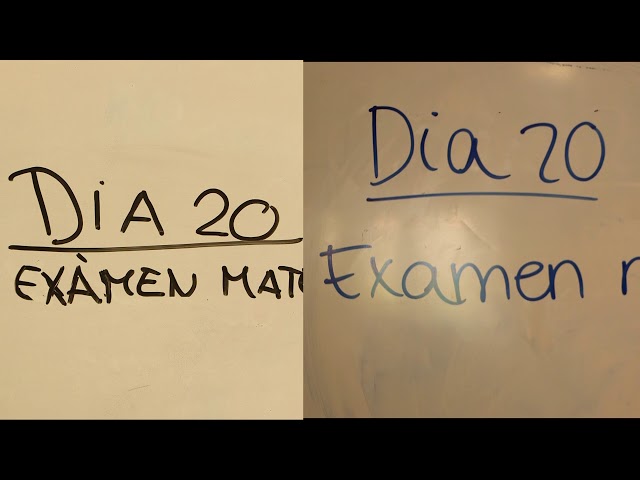 DiA 20
EXÀMEN MATE
Dia 20
Examen